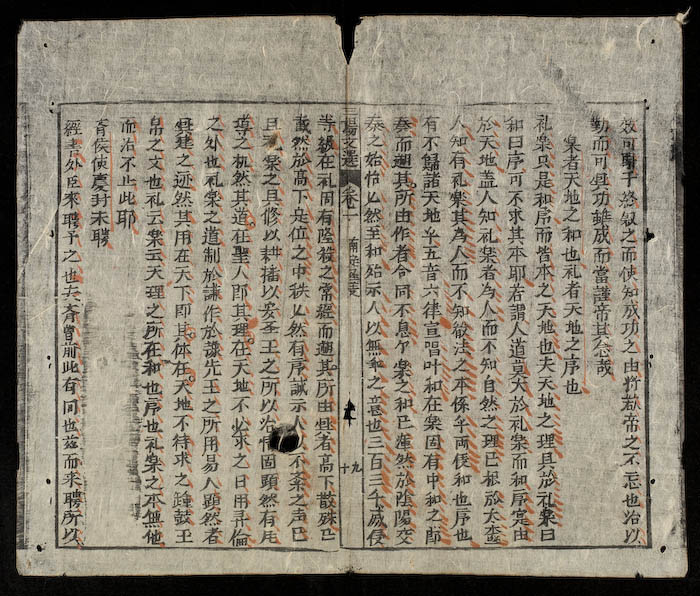 效可聊予慾叙之而使知成功之由將歌帝之不忘也治以
勤而可興功雖成而當謹帝其念哉
樂者天地之和也礼者天地之序也
礼樂只是和序而皆本之天地也夫天地之理具於礼樂曰
和曰序可不求其本耶若謂人道莫大於礼樂而和序寔由
於天地盖人知礼樂者為人而不知自然之理已根於太
人知有礼樂其為人而不知效法之本係乎兩儀和也序也
有不歸諸天地乎五音六律宣唱叶和在樂固有中和之節
奏而遡其所由作者合同不息乃樂之和已渾然於陰陽交
泰之始恰恰然至和始示人以無乖之意也三百三千威儀
陽文選 卷一
十九
等級在礼固有隆殺之常經而遡其所由異者高下散殊已
截然於高下是位之中秩秩然有序誠示人以不紊之
且礼樂之具修以耕播以妥王之所以治情固顯然有
導之机然其道在聖人即其理在天地不必求之日用彛倫
之外也礼樂之道制於謙作於豫先王之所用易人顯然者
建之迹然其用在天下即其体在天地不待求之鐘鼓玉
帛之文也礼云樂云天理之所在和也序也礼樂之本無他
而治不止此耶
齊侯使慶封來聘
經書外臣來聘予之也夫齊魯前此有同也茲而來聘所以